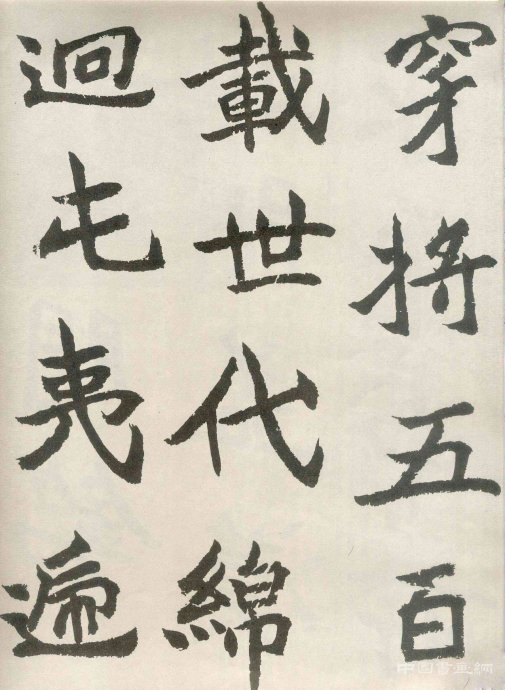 穿將五百
載世代綿
迴屯夷遞
中国書画網